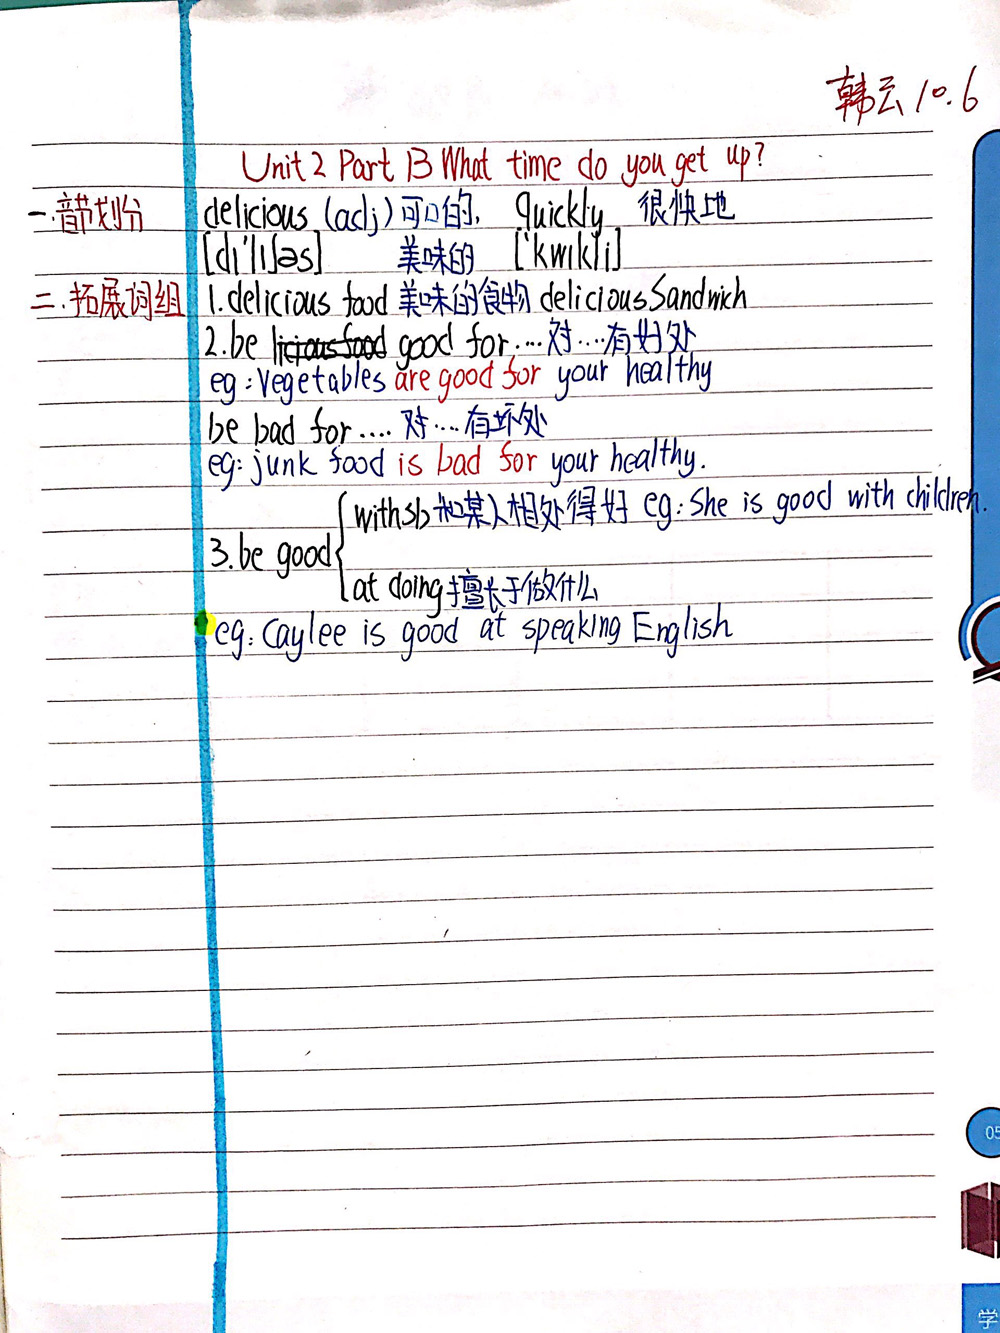 韩云 10.6
Unit 2 Part B What time do you get up?
一.音节划分 delicious (adj) 可口的, quickly 很快地
[dɪ'lɪʃəs] 美味的 ['kwɪkli]
二.拓展词组 1.delicious food 美味的食物 delicious Sandwich
2.be licious food good for.... 对....有好处
eg:Vegetables are good for your healthy
be bad for.... 对....有坏处
eg: junk food is bad for your healthy.
with sb 和某人相处得好 eg: She is good with children.
3.be good
at doing 擅长于做什么
eg: Caylee is good at speaking English
05
学